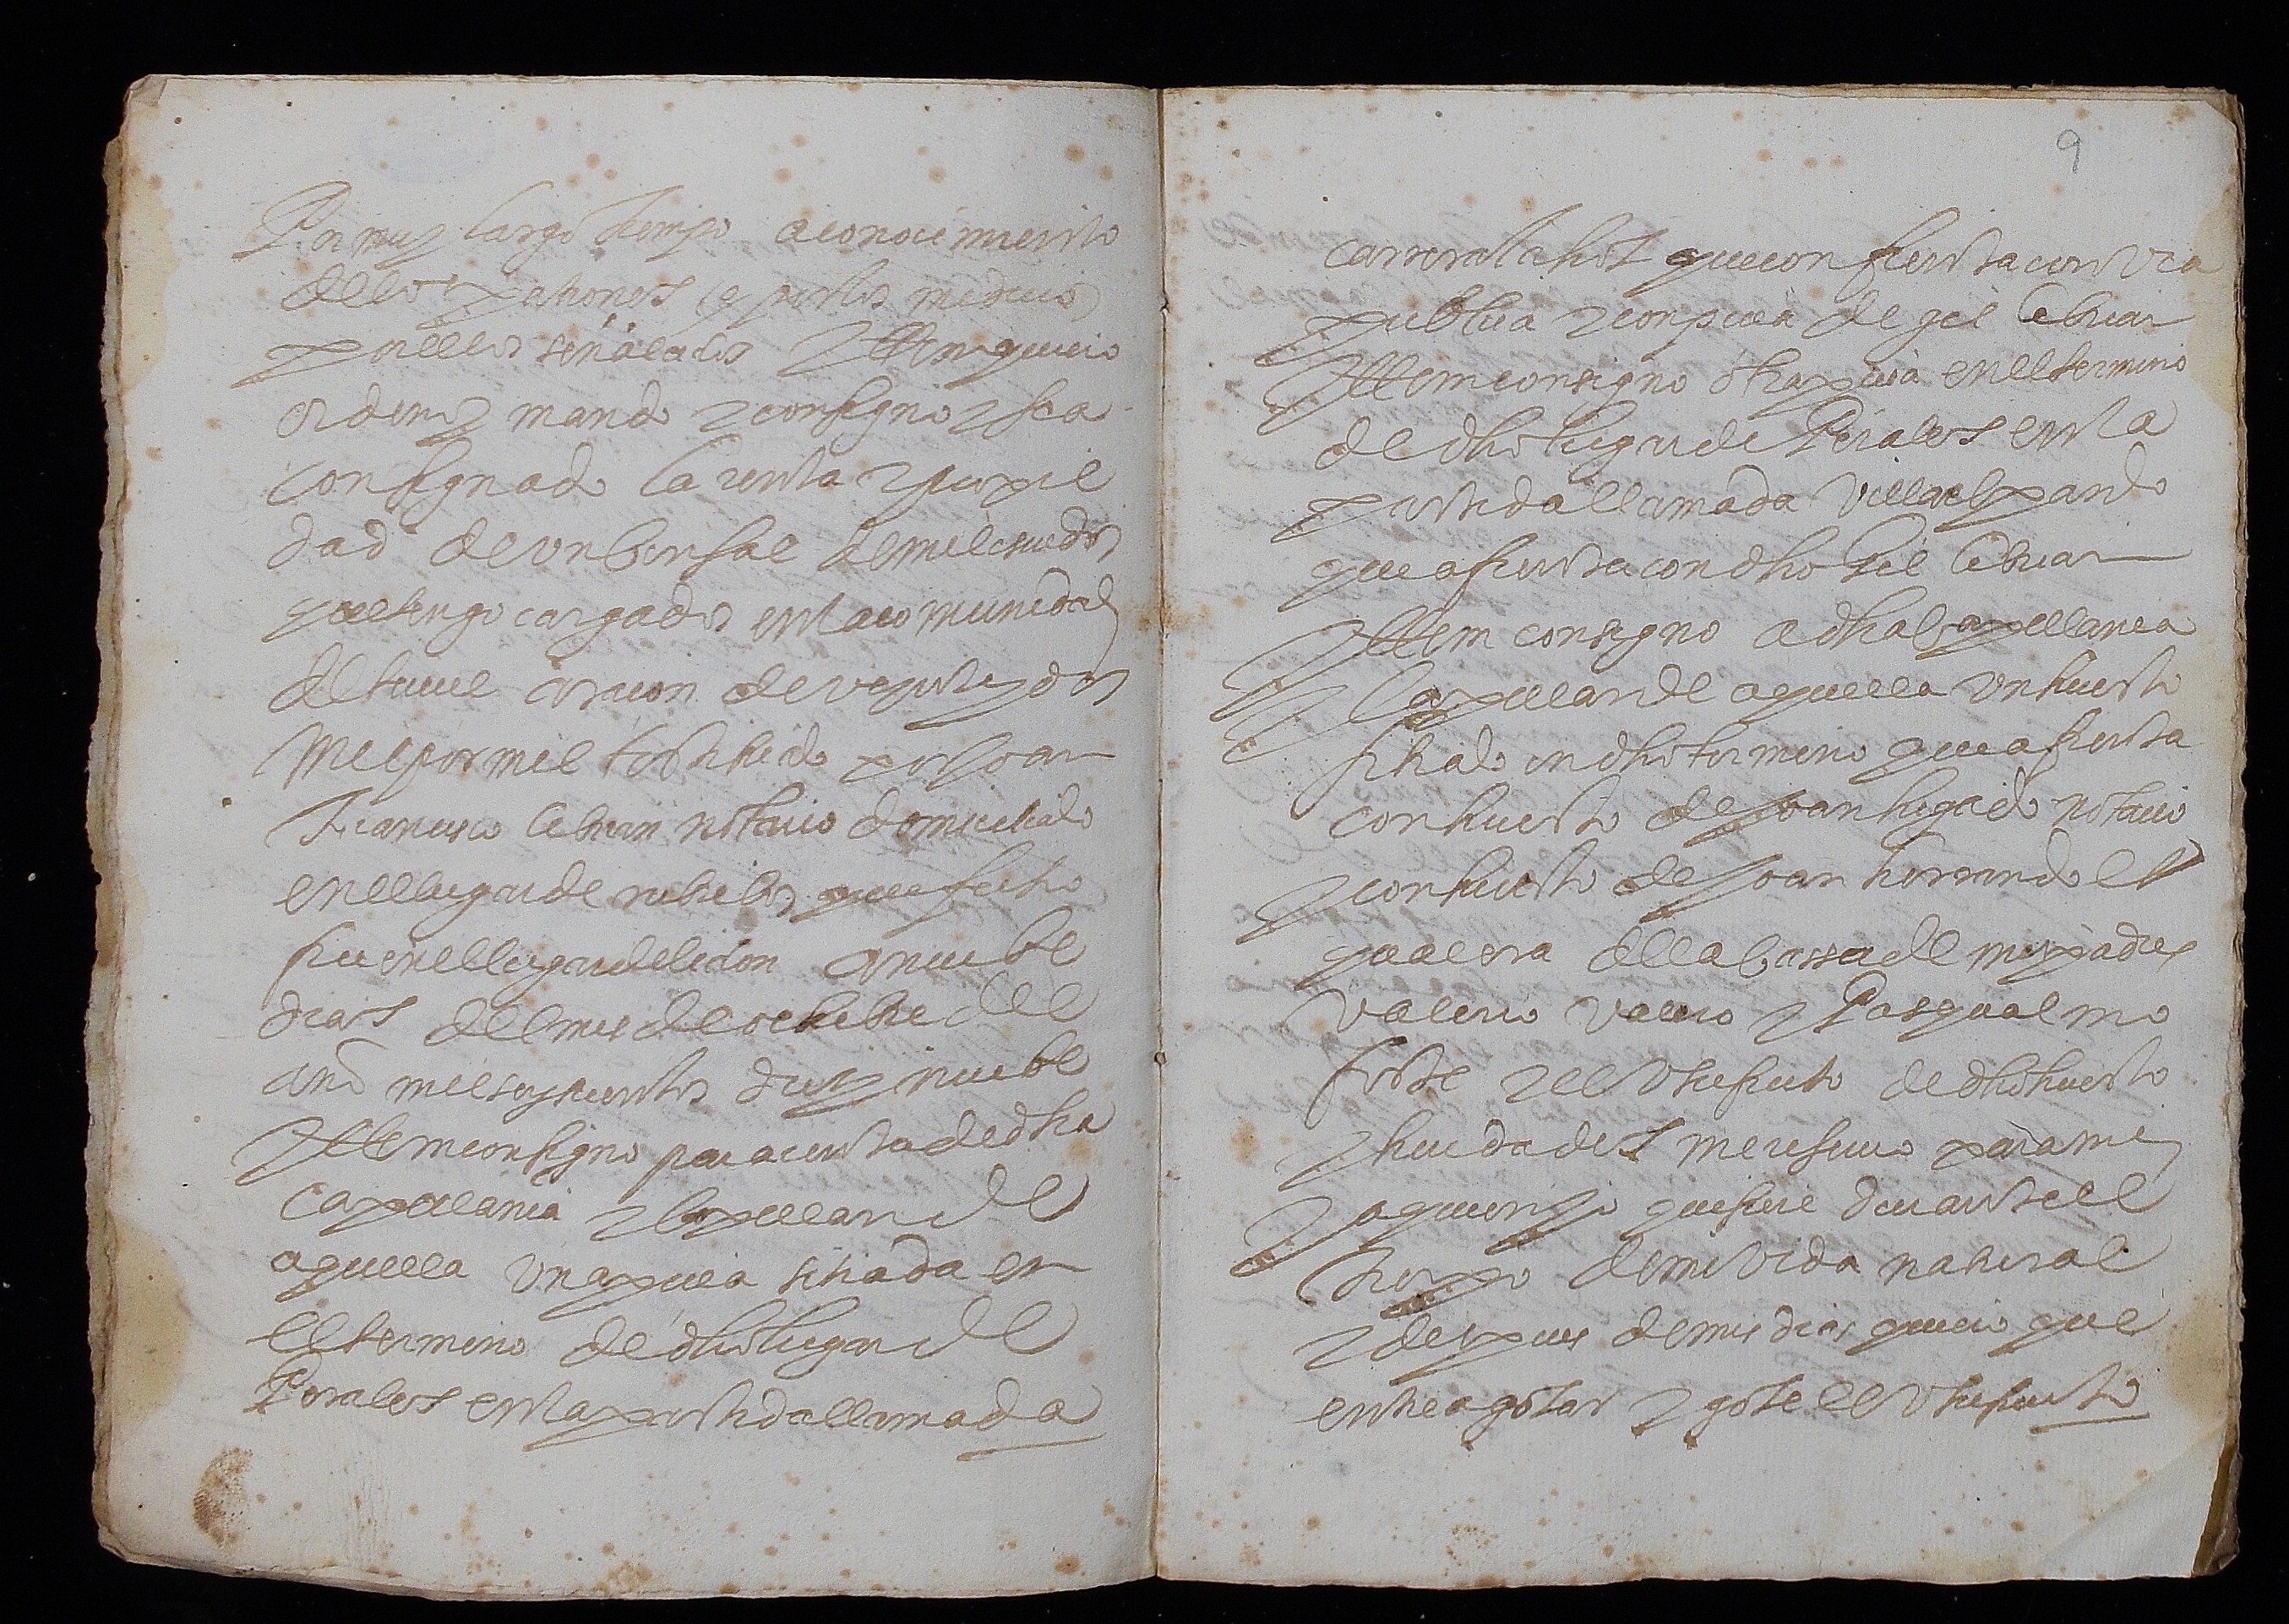 Por muy largo tiempo a conocimiento
de los patrones y por los medicos
por ellos señalados Ittem quiero
ordeno y mando y consigno y sea
consignado la renta y propie
dad de un censal de mil escudos
que tengo cargados en la comunidad
de teruel a raçon de veynte y dos
mil por mil testificado por Joan
Francisco Cebrian notario domiciliado
en el lugar de rubielos que fecho
fue en el lugar de lidon a nuebe
dias del mes de octubre del
año mil seyscientos diez y nuebe
Ittem consigno para renta de dha
capellania y capellan de
aquella una pieça sitiada en
el termino de dho lugar de
Perales en la partida llamada
9
carrera que confrenta con via
publica y con pieça de gil Cebrian
Ittem consigno otra pieça en el termino
de dho lugar de Perales en la
partida llamada villaelpardo
que afrenta con dho Gil Cebrian
Ittem consigno a dha capellania
y capellan de aquella un huerto
sitiado en dho termino que afrenta
con huerto de Joan lugardo notario
y con huerto de Joan herrando el
qual era de la cassa de mis padres
Valerio Valero y Pasquala mo
forte y el usufructo de dho huerto
y heredades me reservo para mi
y a quien yo quisiere durante el
tiempo de mi vida natural
y despues de mis dias quiero que
entre a goçar y goçe el usufructo